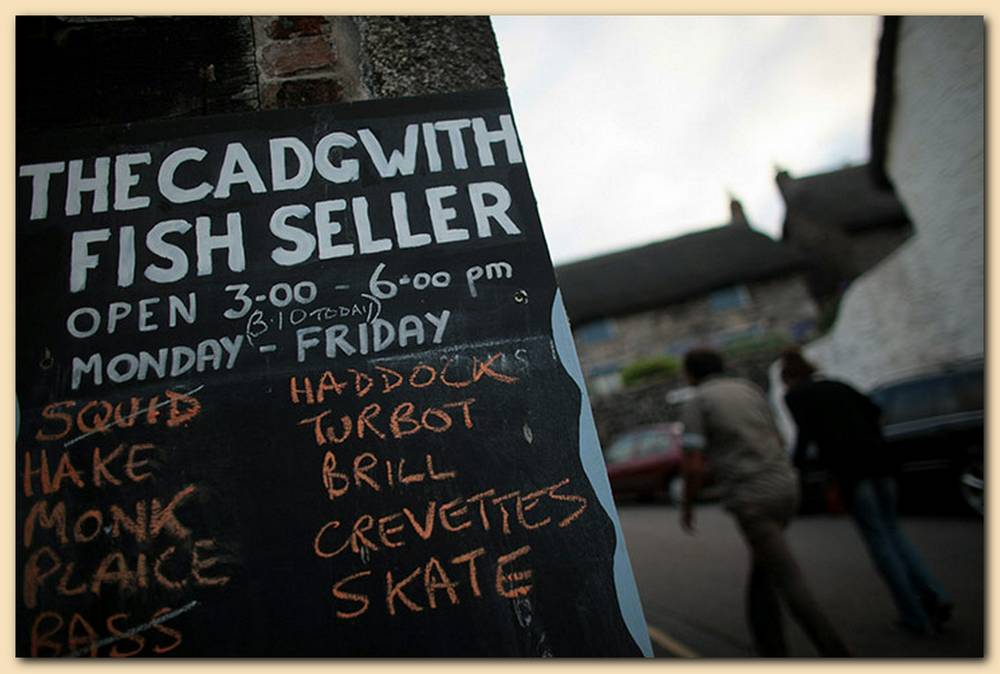 THE CADGWITH
FISH SELLER
OPEN 3-00 - 6-00 pm
(3·10 TODAY)
MONDAY - FRIDAY
SQUID
HAKE
MONK
PLAICE
BASS
HADDOCK
TURBOT
BRILL
CREVETTES
SKATE